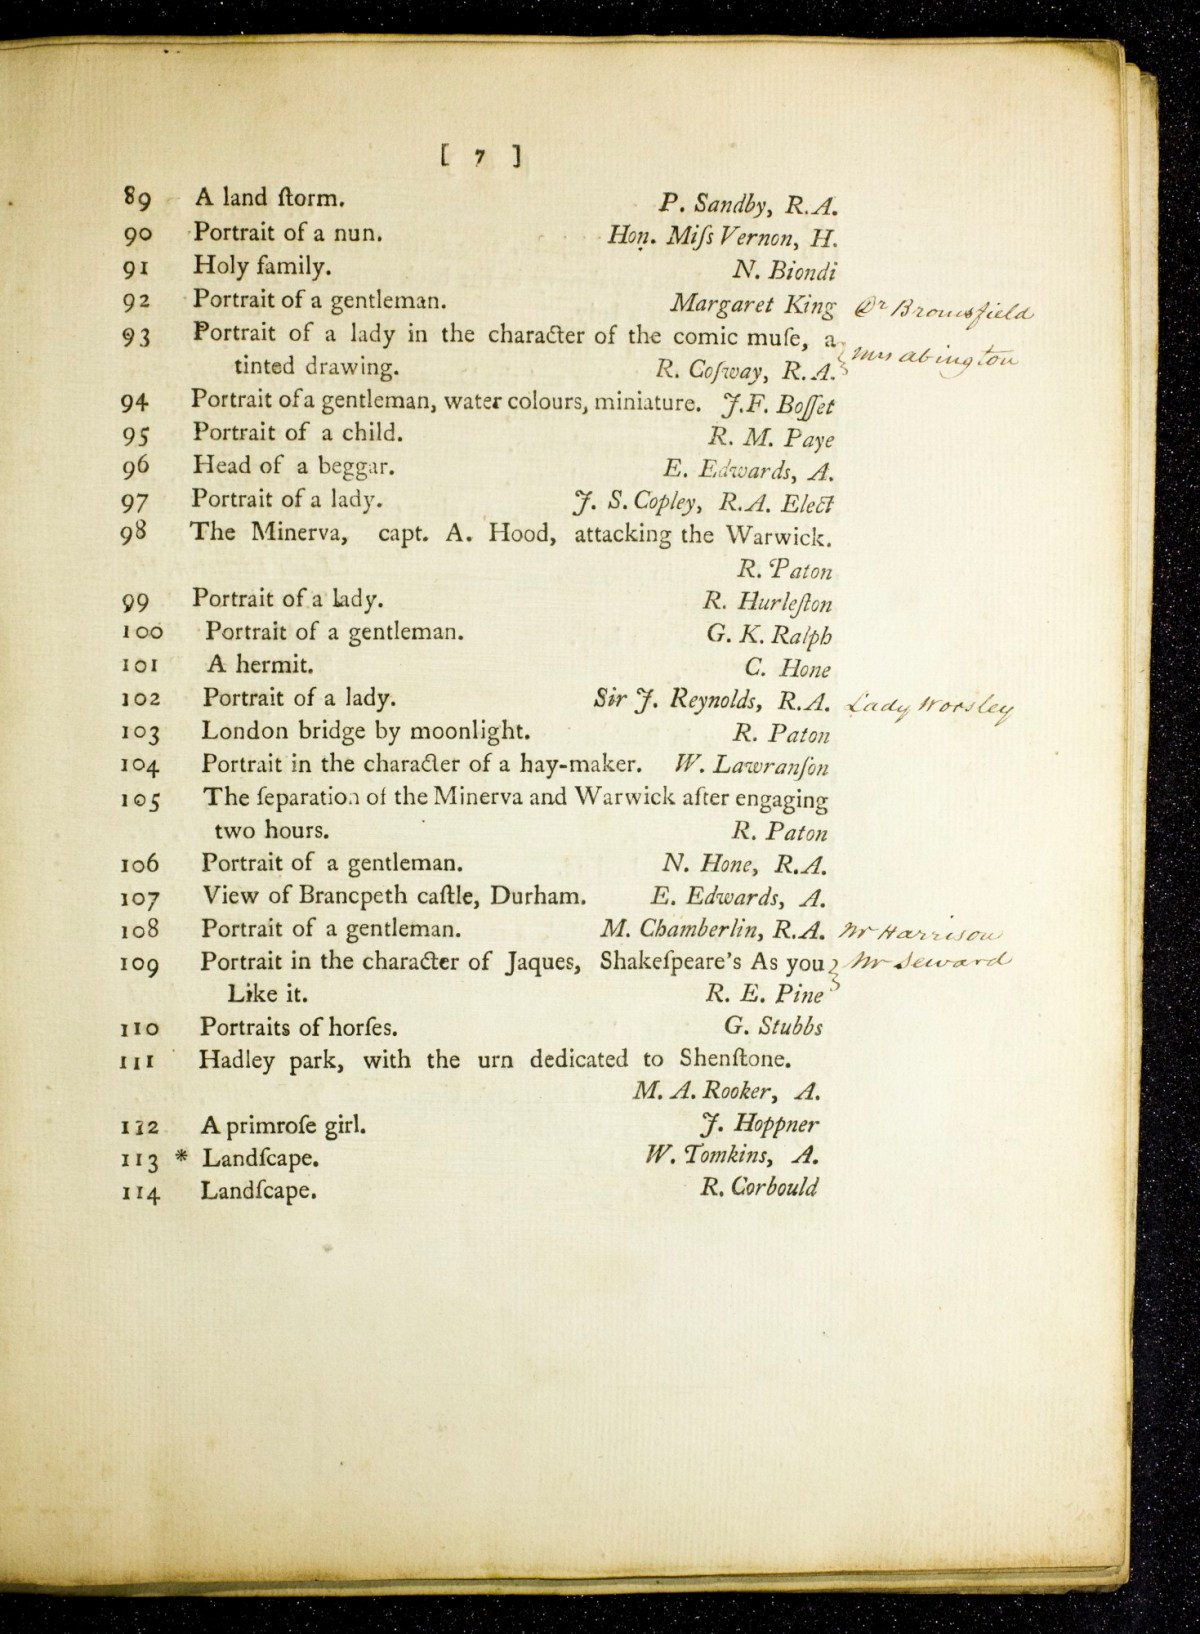 [ 7 ]
89 A land ſtorm. P. Sandby, R.A.
90 Portrait of a nun. Hon. Miſs Vernon, H.
91 Holy family. N. Biondi
92 Portrait of a gentleman. Margaret King Dr Bromsfield
93 Portrait of a lady in the character of the comic muſe, a
tinted drawing. R. Coſway, R.A. Mrs Abington
94 Portrait of a gentleman, water colours, miniature. J.F. Boſſet
95 Portrait of a child. R. M. Paye
96 Head of a beggar. E. Edwards, A.
97 Portrait of a lady. J. S. Copley, R.A. Elect
98 The Minerva, capt. A. Hood, attacking the Warwick.
R. Paton
99 Portrait of a lady. R. Hurleſton
100 Portrait of a gentleman. G. K. Ralph
101 A hermit. C. Hone
102 Portrait of a lady. Sir J. Reynolds, R.A. Lady Worsley
103 London bridge by moonlight. R. Paton
104 Portrait in the character of a hay-maker. W. Lawranſon
105 The ſeparation of the Minerva and Warwick after engaging
two hours. R. Paton
106 Portrait of a gentleman. N. Hone, R.A.
107 View of Brancpeth caſtle, Durham. E. Edwards, A.
108 Portrait of a gentleman. M. Chamberlin, R.A. Mr Harrison
109 Portrait in the character of Jaques, Shakeſpeare's As you Mr Seward
Like it. R. E. Pine
110 Portraits of horſes. G. Stubbs
111 Hadley park, with the urn dedicated to Shenſtone.
M. A. Rooker, A.
112 A primroſe girl. J. Hoppner
113 * Landſcape. W. Tomkins, A.
114 Landſcape. R. Corbould